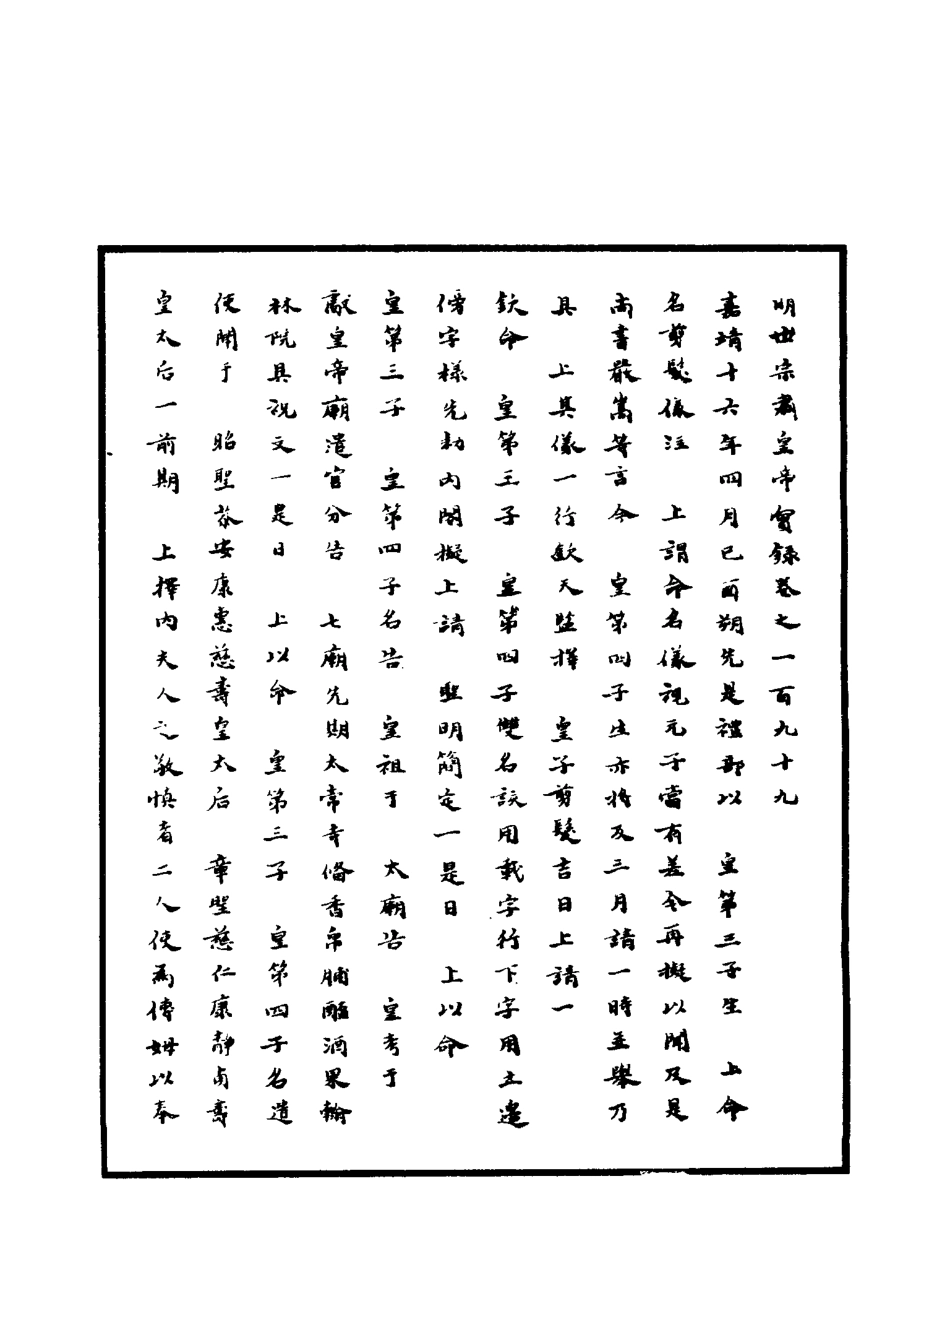 明世宗肅皇帝實錄卷之一百九十九
嘉靖十六年四月己酉朔先是禮部以　皇第三子生　上命
名剪髮儀注　上謂命名儀視元子當有差令再擬以聞及是
尚書嚴嵩等言今　皇第四子生亦將及三月請一時並舉乃
具　上具儀一行欽天監擇　皇子剪髮吉日上請一
欽命　皇第三子　皇第四子雙名該用載字行下字用土邊
傍字樣先勑內閣擬上請　聖明簡定一是日　上以命
皇第三子　皇第四子名告　皇祖于　太廟告　皇考于
獻皇帝廟遣官分告　七廟先期太常寺俻香帛脯醢酒果翰
林院具祝文一是日　上以命　皇第三子　皇第四子名遣
使聞于　昭聖恭安康惠慈壽皇太后　章聖慈仁康靜貞壽
皇太后一前期　上擇內夫人之敬慎者二人使為傅姆以奉